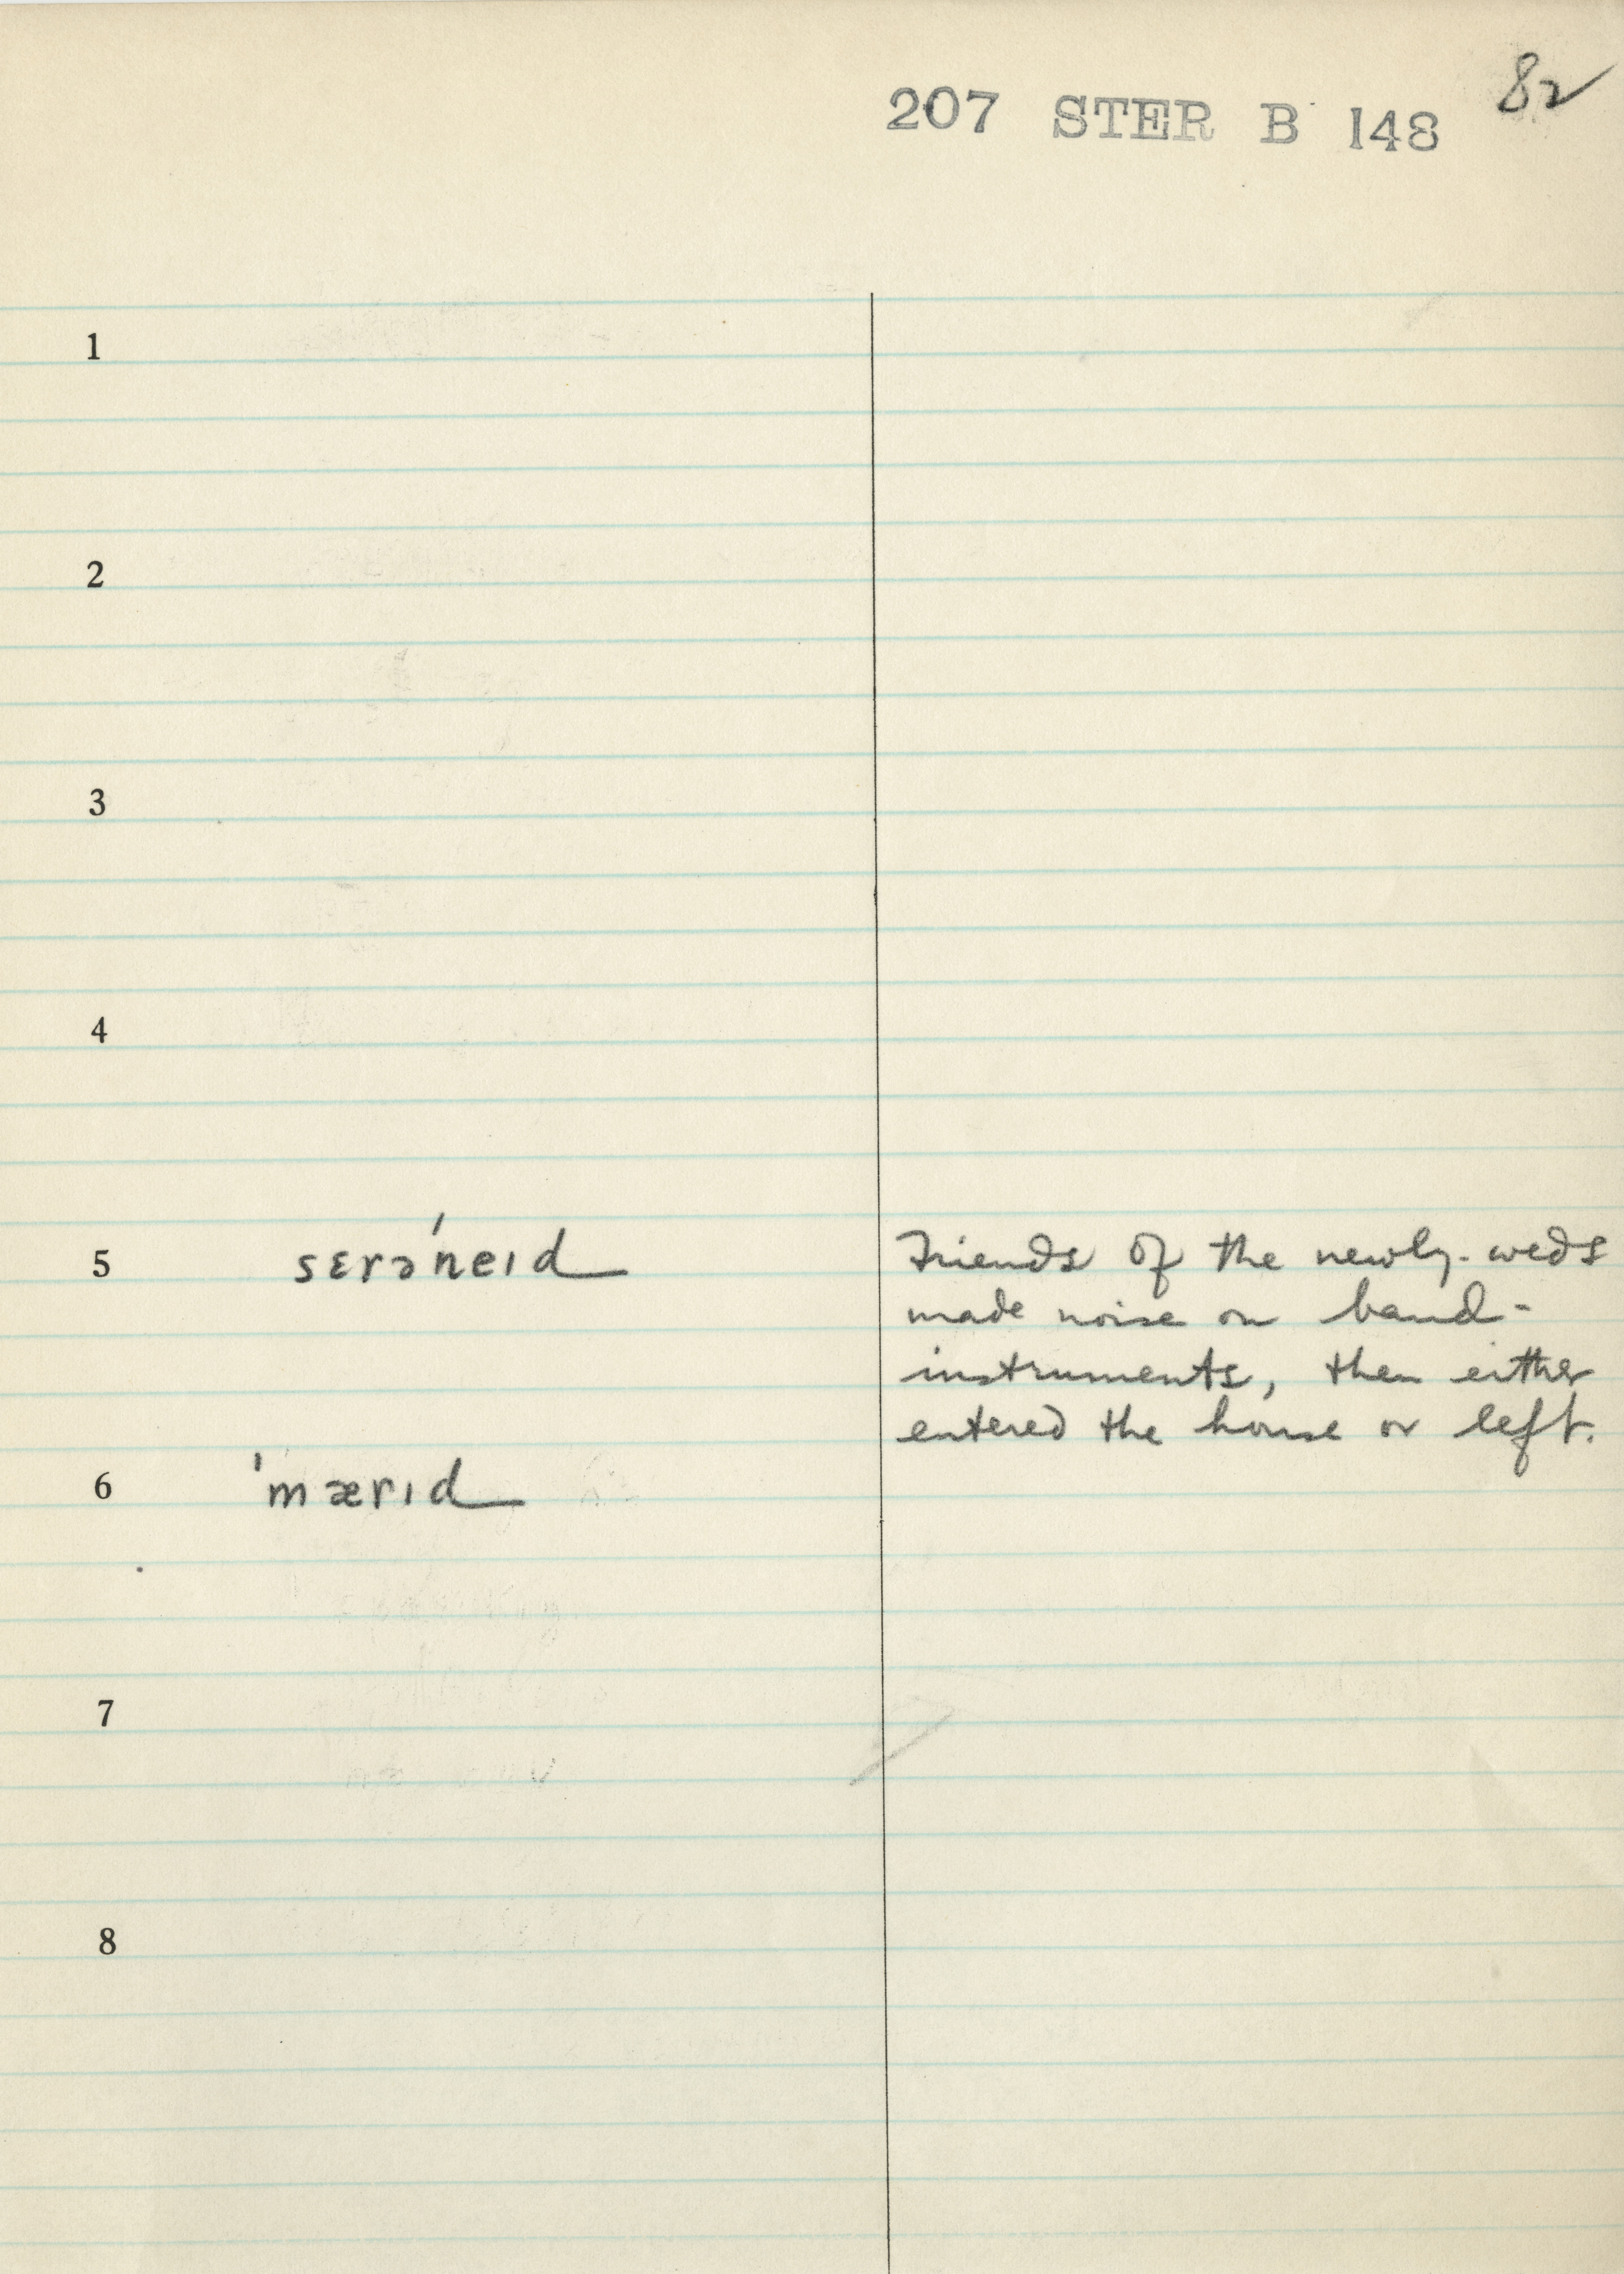 82
207 STER B 148
1
2
3
4
5 sɛrəˈneɪd Friends of the newly-weds
made noise on band-
instruments, then either
entered the house or left.
6 ˈmærɪd
7
8